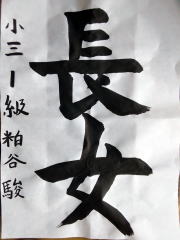 長女
小三 1級 粕谷駿